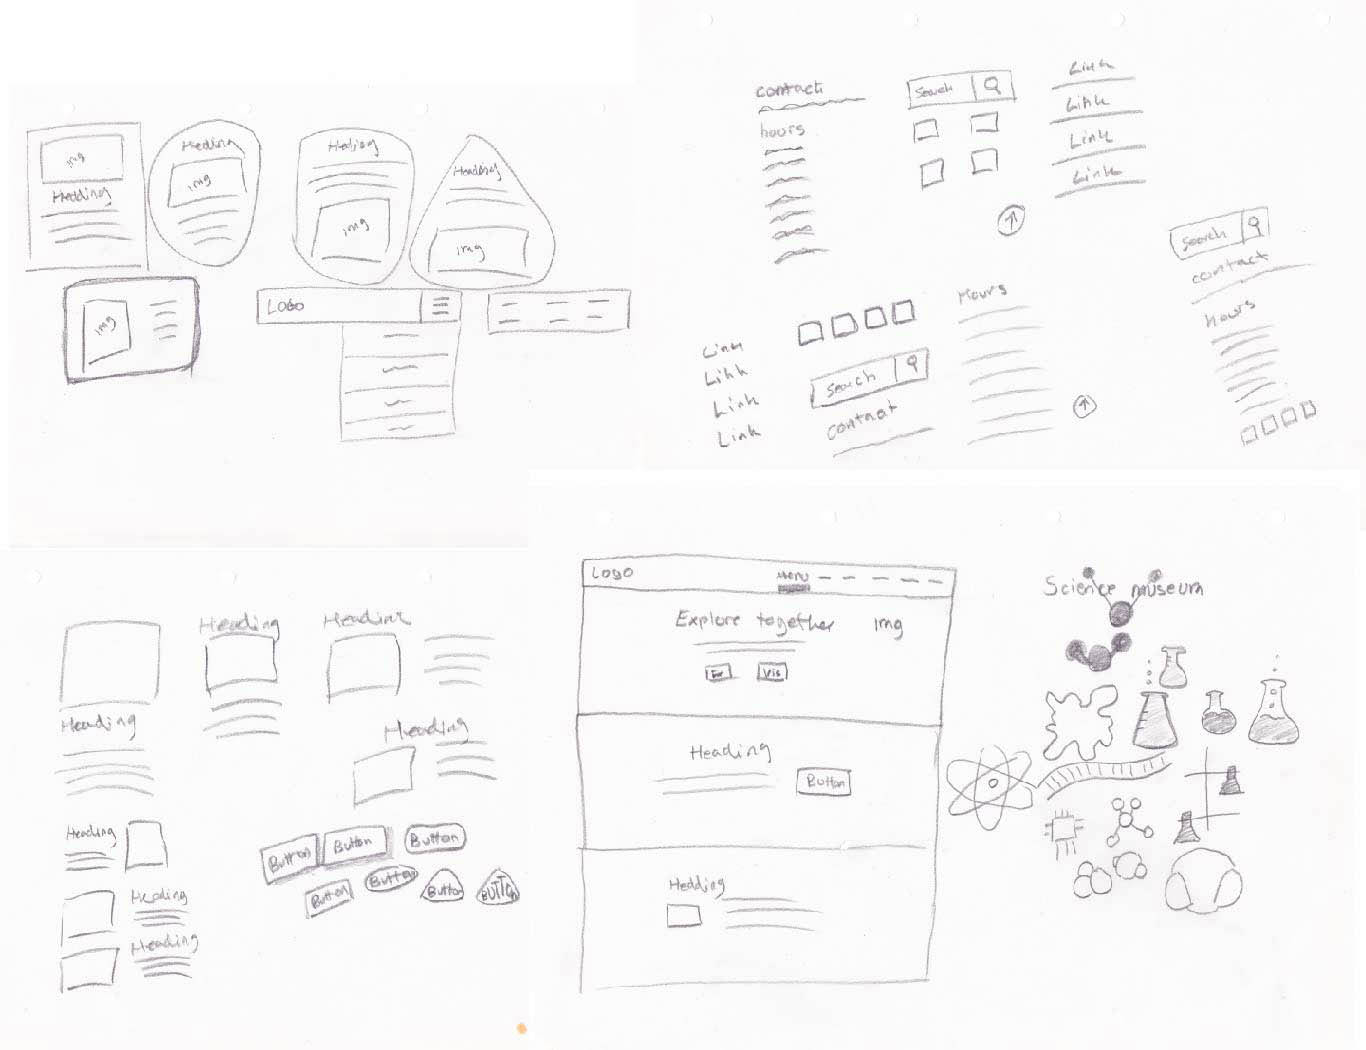 img
Heading
Heading
img
Heading
img
Heading
img
img
LOGO
contact
hours
Search
Link
Link
Link
Link
Search
contact
hours
Hours
Link
Link
Link
Link
Search
contact
Heading
Heading
Heading
Heading
Heading
Heading
Heading
Button
Button
Button
Button
Button
Button
BUTTON
LOGO
Menu
Explore together
img
Vis
Heading
Button
Heading
Science museum